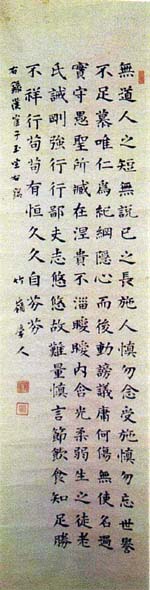 無道人之短無說己之長施人慎勿念受施慎勿忘世譽
不足慕唯仁為紀綱隱心而後動謗議庸何傷無使名過
實守愚聖所臧在涅貴不淄曖曖內含光柔弱生之徒老
氏誡剛強行行鄙夫志悠悠故難量慎言節飲食知足勝
不祥行苟苟有恒久久自芬芬
右錄漢崔子玉坐右銘 竹嶺 人